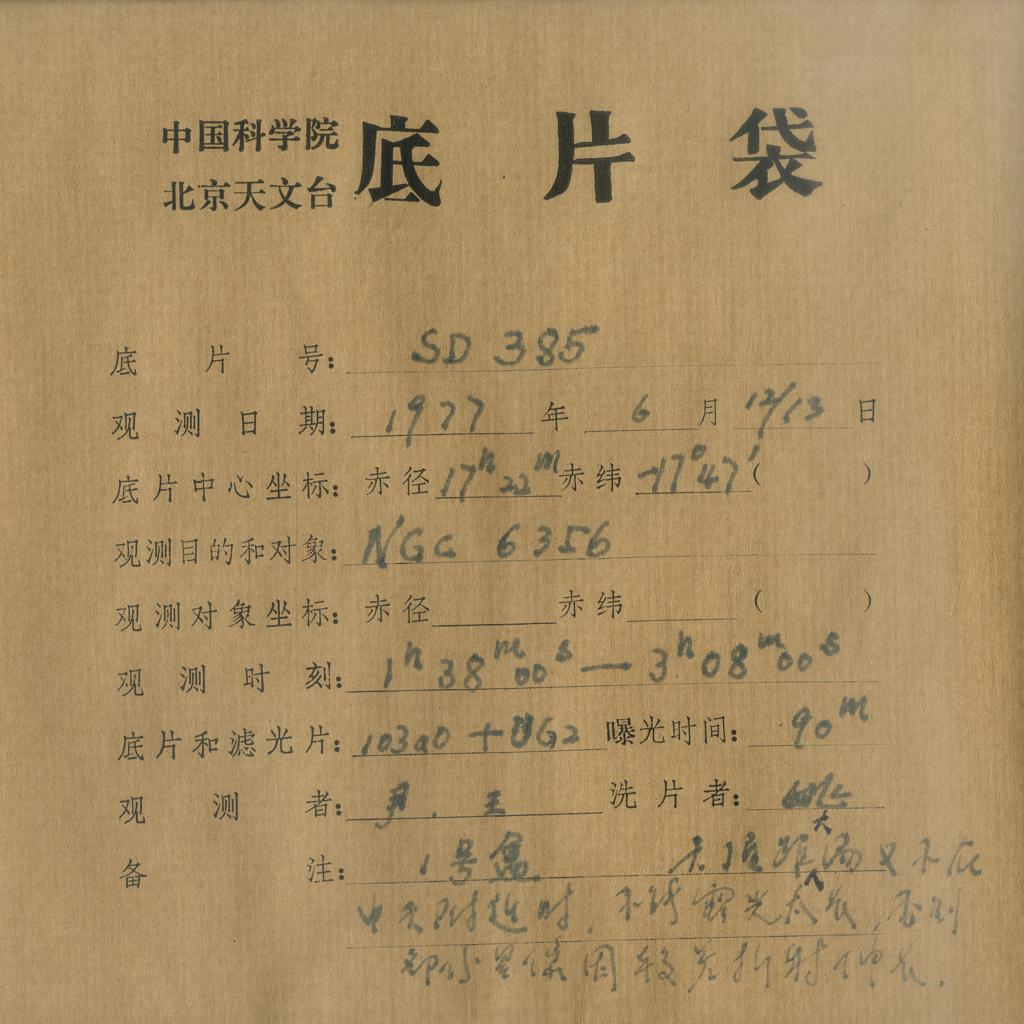 中国科学院
北京天文台
底片袋
底片号: SD 385
观测日期: 1977 年 6 月 12/13 日
底片中心坐标: 赤径 17ʰ22ᵐ 赤纬 -17°47′ ( )
观测目的和对象: NGC 6356
观测对象坐标: 赤径 赤纬 ( )
观测时刻: 1ʰ38ᵐ00ˢ — 3ʰ08ᵐ00ˢ
底片和滤光片: 103aO + UG2 曝光时间: 90ᵐ
观测者: 尹. 王 洗片者:
备注: 1号盒 天 大 又不在
中天附近时, 不能露光太长, 否则
星像因较差折射伸长.